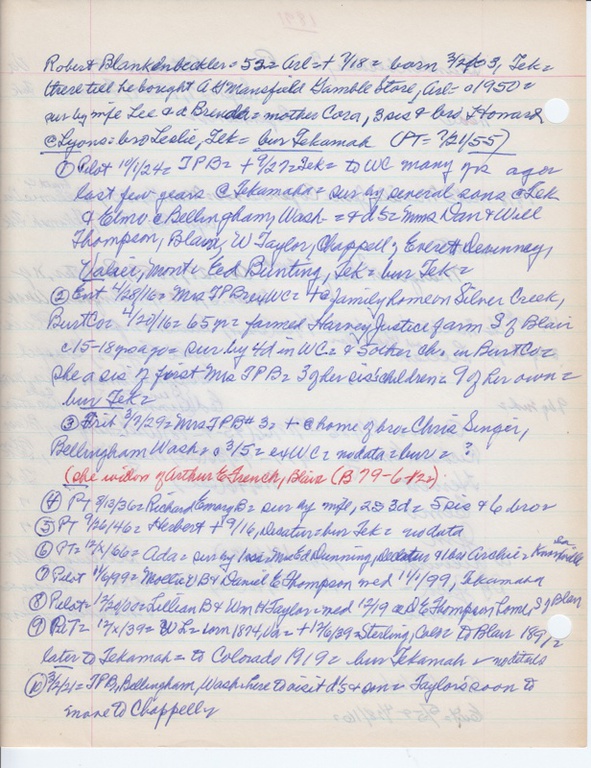 Robert Blankenbeckler = 52 = Arl = + 7/18 = born 3/2/03, Tek =
there till he bought A G Mansfield Gamble Store, Arl = c1950 =
sur by wife Lee & d Brenda = mother Cora, 3 sis & bro Howard
@ Lyons = bro Leslie, Tek = bur Tekamah (PT = 7/21/55)
① Pilot 10/1/24 = J P B = + 9/27 = Tek = to WC many yrs ago =
last few years @ Tekamah = sur by several sons @ Tek
& Elmo @ Bellingham, Wash = & d's = Mmes Dan & Will
Thompson, Blair, W Taylor, Chappell, Everett
Valier, Mont & Ed Bunting, Tek = bur Tek =
② Ent 4/28/16 = Mrs J P B ex WC = + @ family home on Silver Creek,
Burt Co = 4/20/16 = 65 yr = farmed Harvey Justice farm S of Blair
c 15-18 yrs ago = sur by 4 d in WC = & 5 other ch. in Burt Co =
she a sis of first Mrs J P B = 3 of her sis's children = 9 of her own =
bur Tek =
③ Trib 3/7/29 = Mrs J P B #3 = + @ home of bro = Chris Singer,
Bellingham Wash = c 3/5 = ex WC = no data = bur = ?
(she widow of Arthur E French, Blair (B 79-6 #2)
④ PT 8/13/36 = Richard Emory B = sur by wife, 2s 3d = 5 sis & 6 bro =
⑤ PT 9/26/46 = Herbert + 9/16, Decatur = bur Tek = no data
⑥ PT = 12/x/66 = Ada = sur by 1 sis = Mrs Ed Dunning, Decatur & 1 bro Archie =
⑦ Pilot 11/6/99 = B & Daniel E Thompson med 11/1/99, Tekamah
⑧ Pilot = 12/20/00 = Lillian B & Wm H Taylor = med 12/19 @ D E Thompson home, S of Blair
⑨ PilT = 12/x/39 = W L = born 1874, = + 12/6/39 = Sterling, Colo = to Blair
later to Tekamah = to Colorado 1919 = bur Tekamah = no details
⑩ 3/2/21 = J P B, Bellingham, Wash = here to visit d's & son = Taylors soon to
move to Chappell